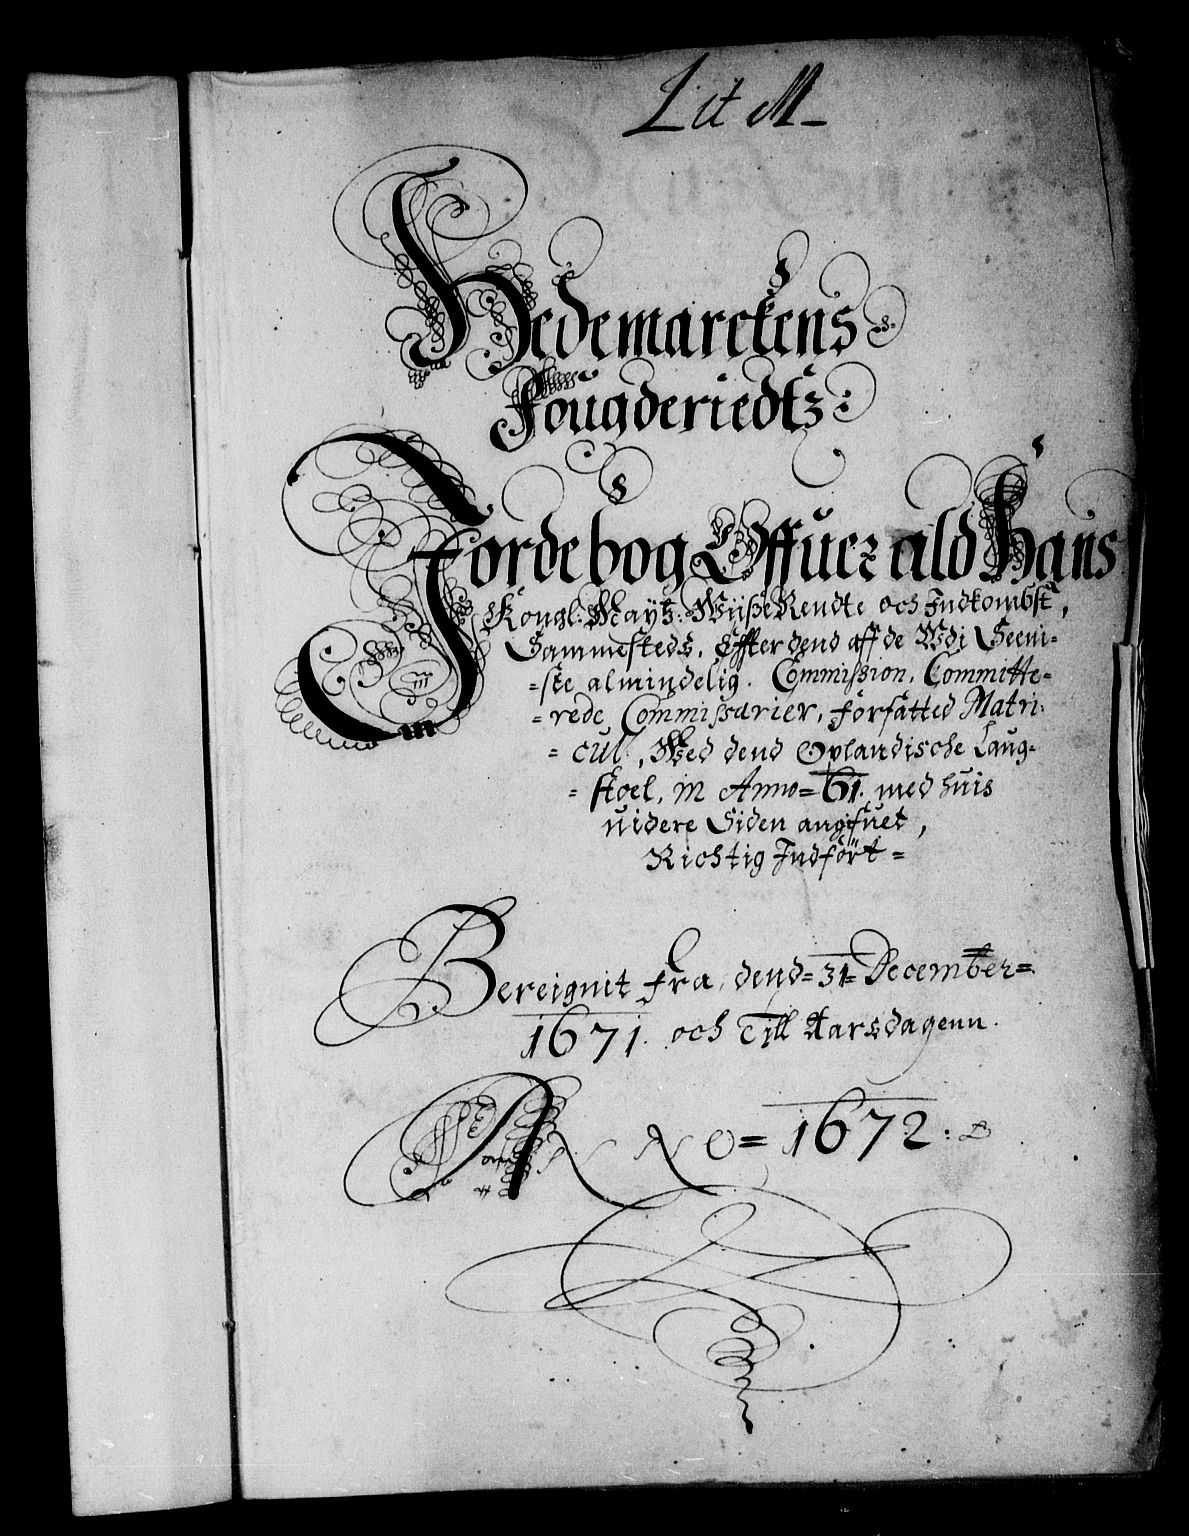 Lit M
Hedemarckens
Fougderiedtz
Jordebog Offuer ald Hans
Kongl: Maytz: Wisse Rendte och Indkombst,
Sammesteds, Effter dend aff de Wdj Seeni=
=ste almindelig. Commission, Committe=
=rede Commissarier, forfatted Matri=
=cul, Wed dend Oplandische Laug=
=stoel, in Anno=61. med huis
uidere Siden angifuet,
Richtig Indfört=
Bereignit fra, dend=31= December=
1671. och Till Aarsdagenn.
ANNO= 1672: